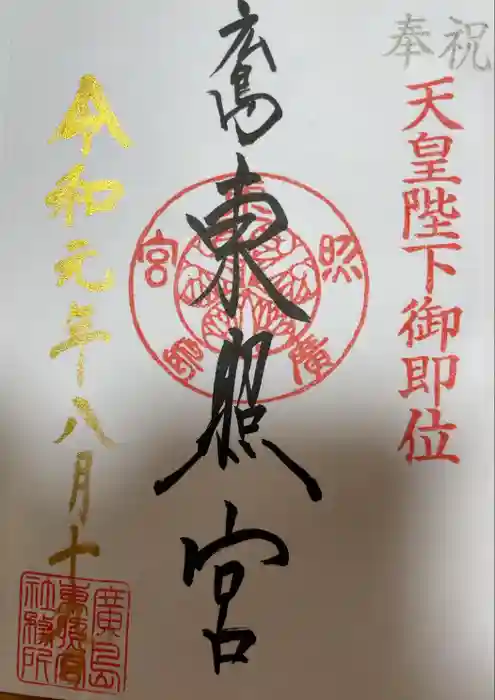 奉祝
天皇陛下御即位
広島
東照宮
令和元年八月十
廣島
東照宮
社務所